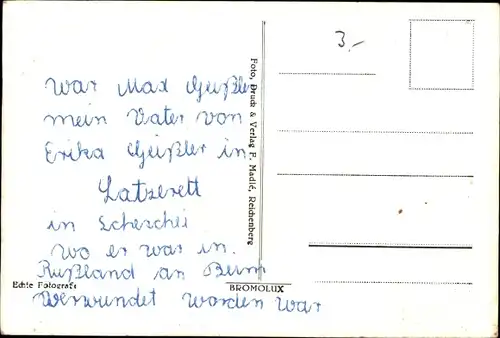 3.-
war Max Geißler
mein Vater von
Erika Geißler in
Latzerett
in
wo er war in
Rußland am Bein
Verwundet worden war
Echte Fotografie
BROMOLUX
Foto, Druck & Verlag F. Madlé, Reichenberg